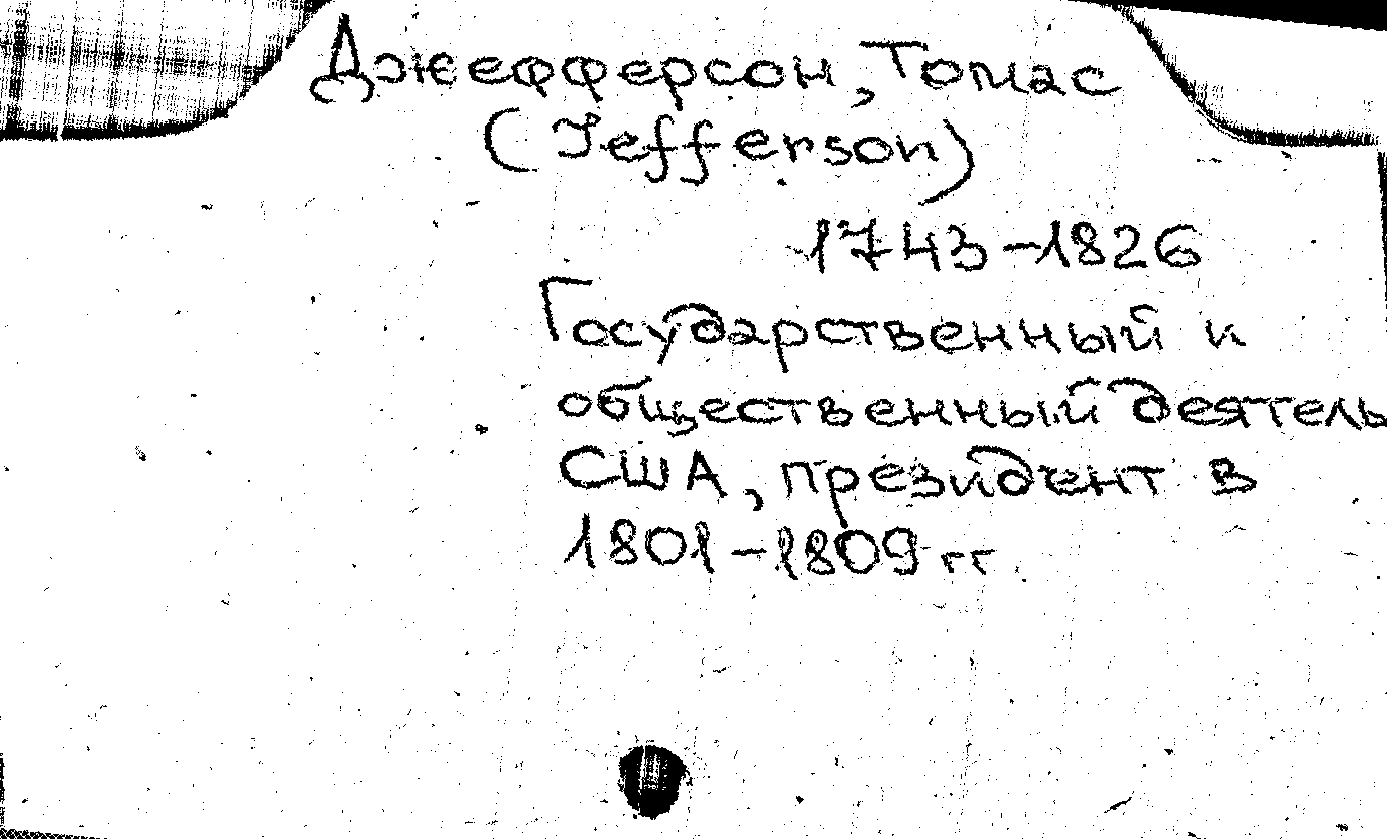 Джефферсон, Томас
(Jefferson)
1743-1826
Государственный и
общественный деятель
США, президент в
1801-1809 гг.